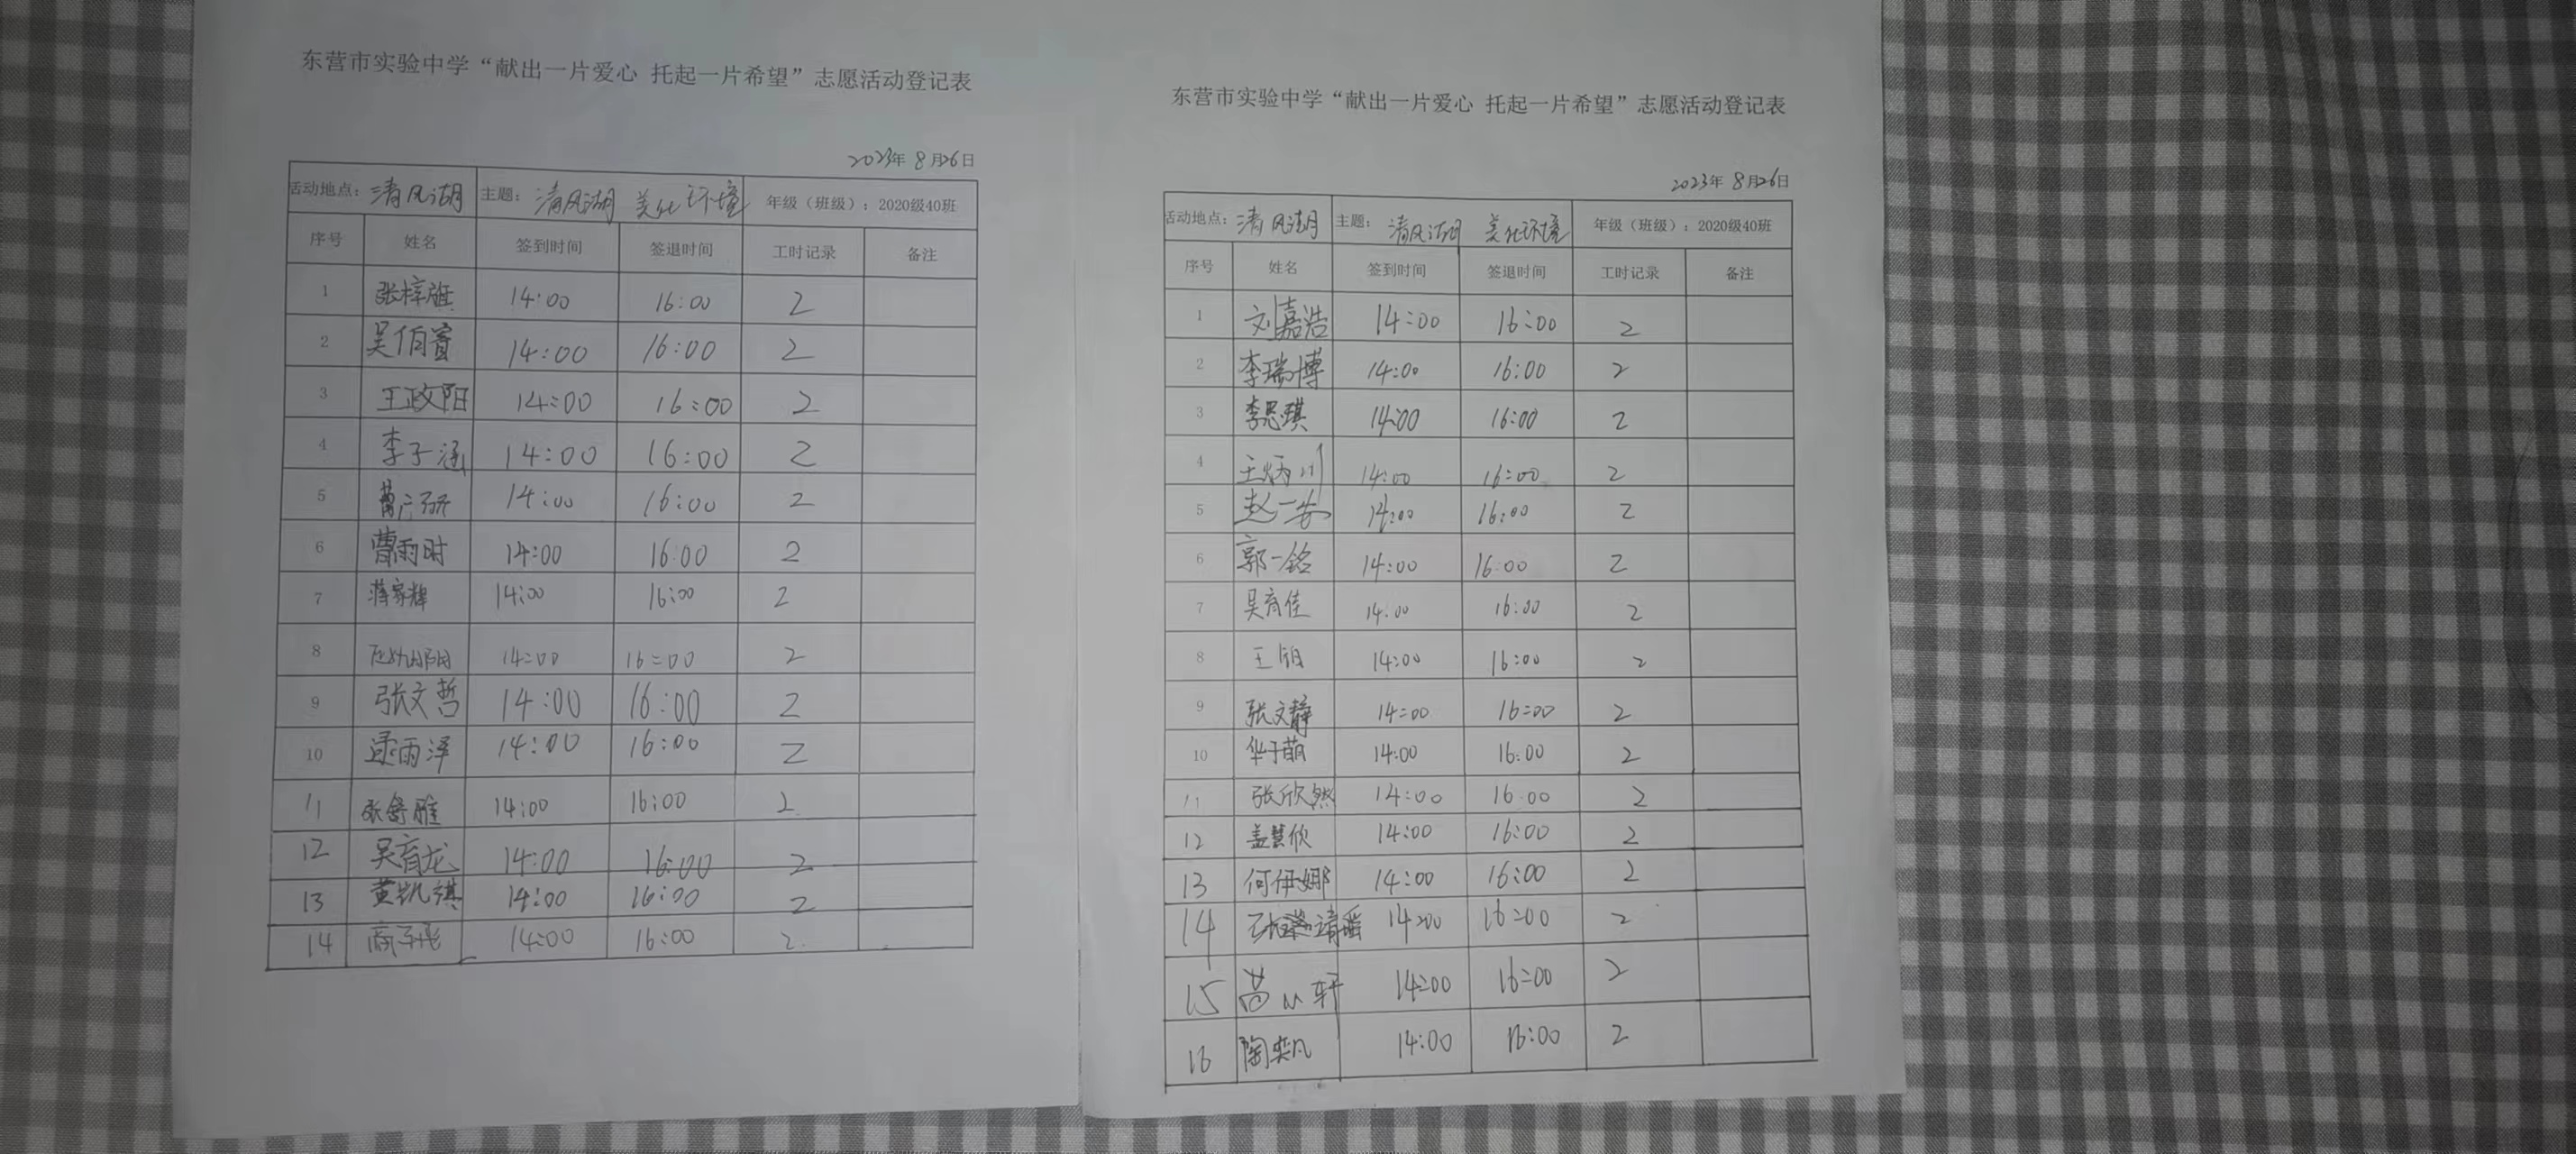 东营市实验中学“献出一片爱心 托起一片希望”志愿活动登记表
2023年 8月26日
活动地点：清风湖 主题：清风湖 美化环境 年级（班级）：2020级40班
序号 姓名 签到时间 签退时间 工时记录 备注
1 张梓旌 14:00 16:00 2
2 吴佰萱 14:00 16:00 2
3 王政阳 14:00 16:00 2
4 李子涵 14:00 16:00 2
5 14:00 16:00 2
6 曹雨时 14:00 16:00 2
7 蒋家辉 14:00 16:00 2
8 14:00 16:00 2
9 张文哲 14:00 16:00 2
10 逯雨泽 14:00 16:00 2
11 张舒雅 14:00 16:00 2
12 吴育龙 14:00 16:00 2
13 黄凯祺 14:00 16:00 2
14 14:00 16:00 2
东营市实验中学“献出一片爱心 托起一片希望”志愿活动登记表
2023年 8月26日
活动地点：清风湖 主题：清风湖 美化环境 年级（班级）：2020级40班
序号 姓名 签到时间 签退时间 工时记录 备注
1 刘嘉浩 14:00 16:00 2
2 李瑞博 14:00 16:00 2
3 李思琪 14:00 16:00 2
4 王炳川 14:00 16:00 2
5 赵一安 14:00 16:00 2
6 郭一铭 14:00 16:00 2
7 吴育佳 14:00 16:00 2
8 14:00 16:00 2
9 张文静 14:00 16:00 2
10 华于萌 14:00 16:00 2
11 张欣然 14:00 16:00 2
12 盖慧欣 14:00 16:00 2
13 何伊娜 14:00 16:00 2
14 14:00 16:00 2
15 14:00 16:00 2
16 陶奕凡 14:00 16:00 2